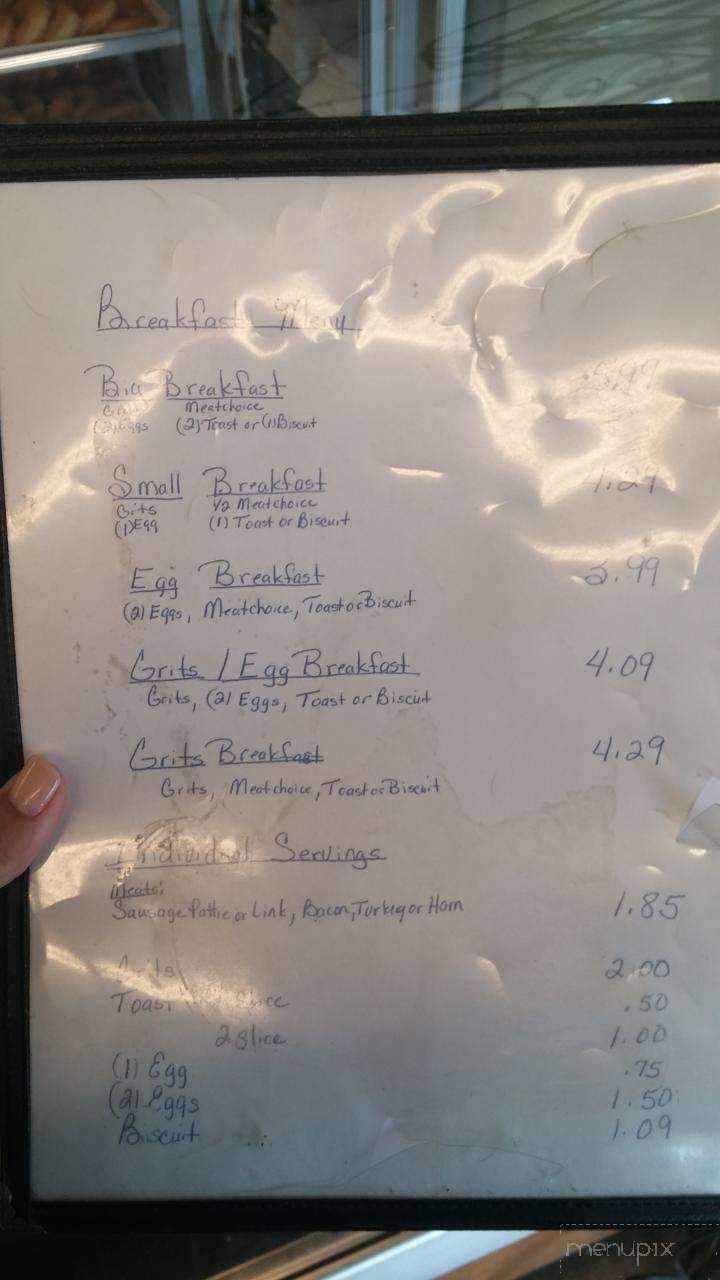 Breakfast Menu
Big Breakfast 5.99
Grits Meatchoice
(2) Eggs (2) Toast or (1) Biscuit
Small Breakfast 4.29
Grits 1/2 Meatchoice
(1) Egg (1) Toast or Biscuit
Egg Breakfast
(2) Eggs, Meatchoice, Toast or Biscuit
Grits / Egg Breakfast 4.09
Grits, (2) Eggs, Toast or Biscuit
Grits Breakfast 4.29
Grits, Meatchoice, Toast or Biscuit
Individual Servings
Meats:
Sausage Pattie or Link, Bacon, Turkey or Ham 1.85
Grits 2.00
Toast Slice .50
2 Slice 1.00
(1) Egg .75
(2) Eggs 1.50
Biscuit 1.09
menupix